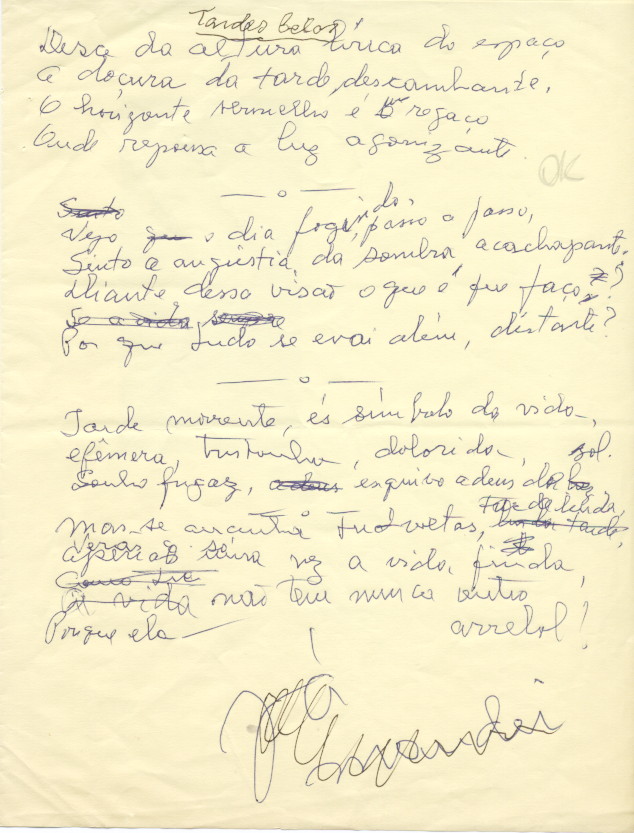 Tardes belas!
Desce da altura lírica do espaço
a doçura da tarde descambante.
O horizonte vermelho é regaço
Onde repousa a luz agonizante.
OK
— o —
Sinto
Vejo que o dia fogindo, passo a passo,
Sinto a angustia da sombra acachapante.
Diante dessa visão o que é que faço?
Se a vida sempre
Por que tudo se evai além, distante?
— o —
Tarde morrente, és símbolo da vida,
efêmera, tristonha, dolorida,
Sonho fugaz, adeus esquivo adeus do sol.
— o —
Mas se amanhã tu voltas,
a vida finda,
Como
A vida não tem nunca outro
Porque ela — arrebol!